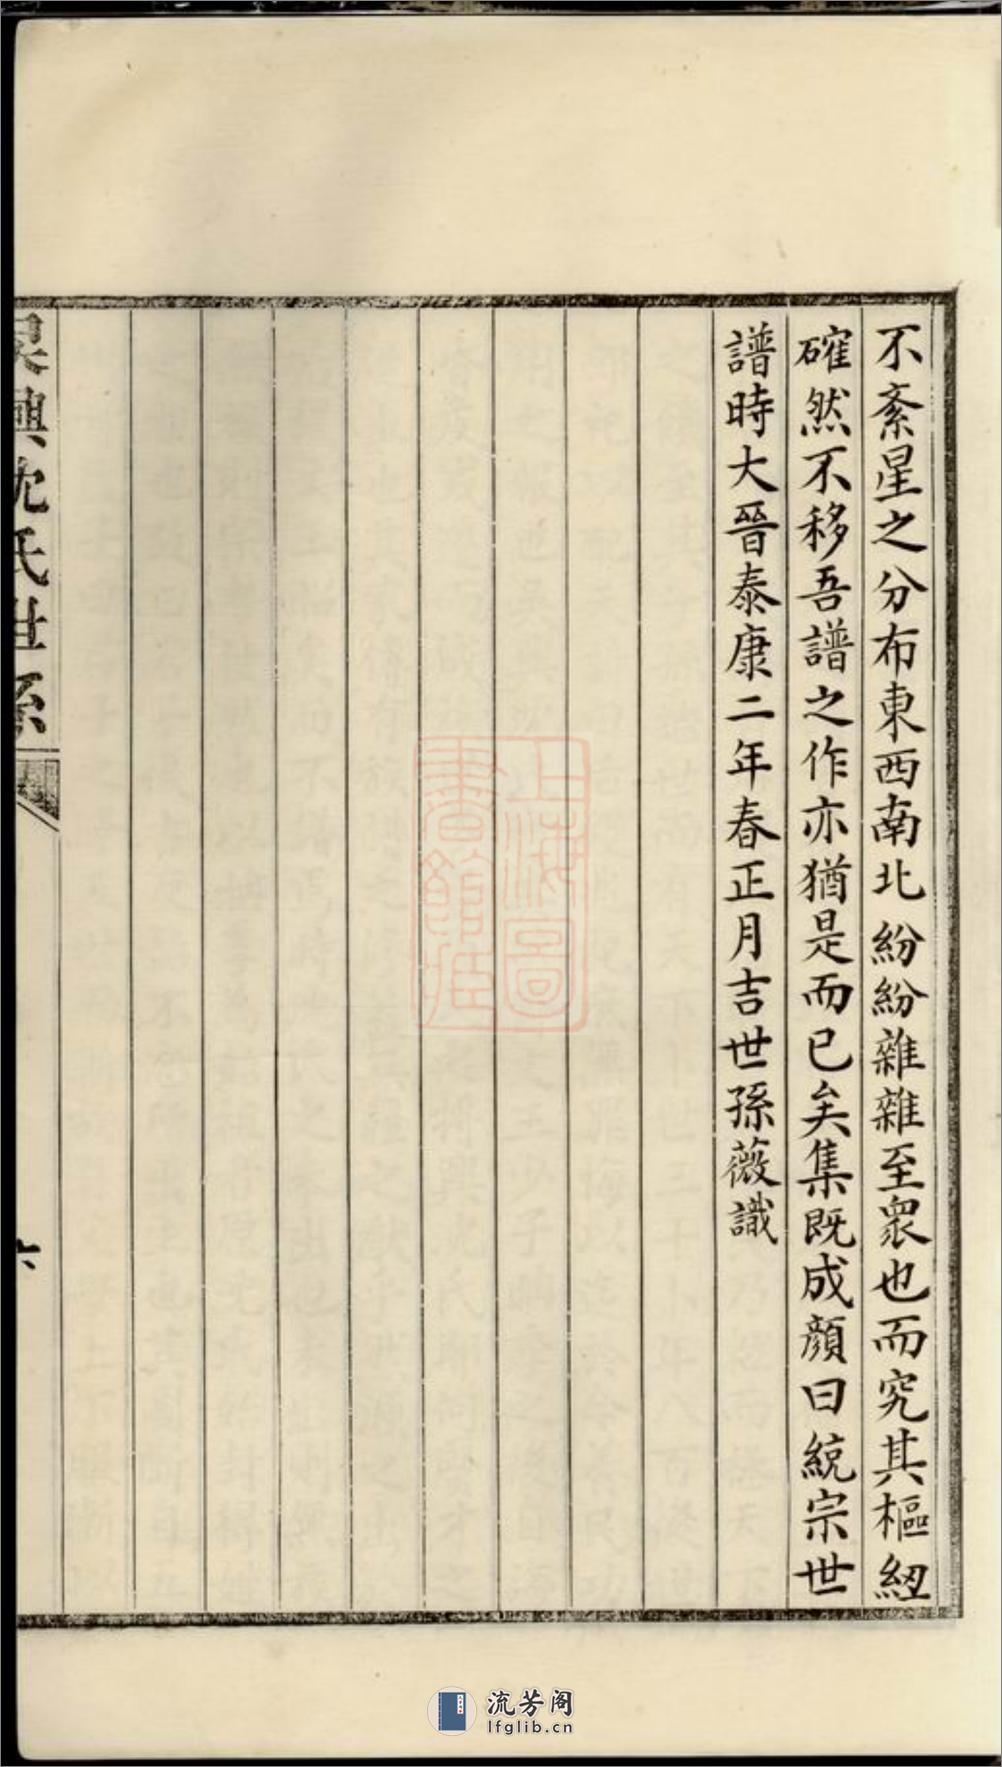 不紊星之分布東西南北紛紛雜雜至衆也而究其樞紐
確然不移吾譜之作亦猶是而已矣集既成顏曰統宗世
譜時大晉泰康二年春正月吉世孫薇識
吳興沈氏世系
六
上海圖
書館藏
流芳阁
lfglib.cn